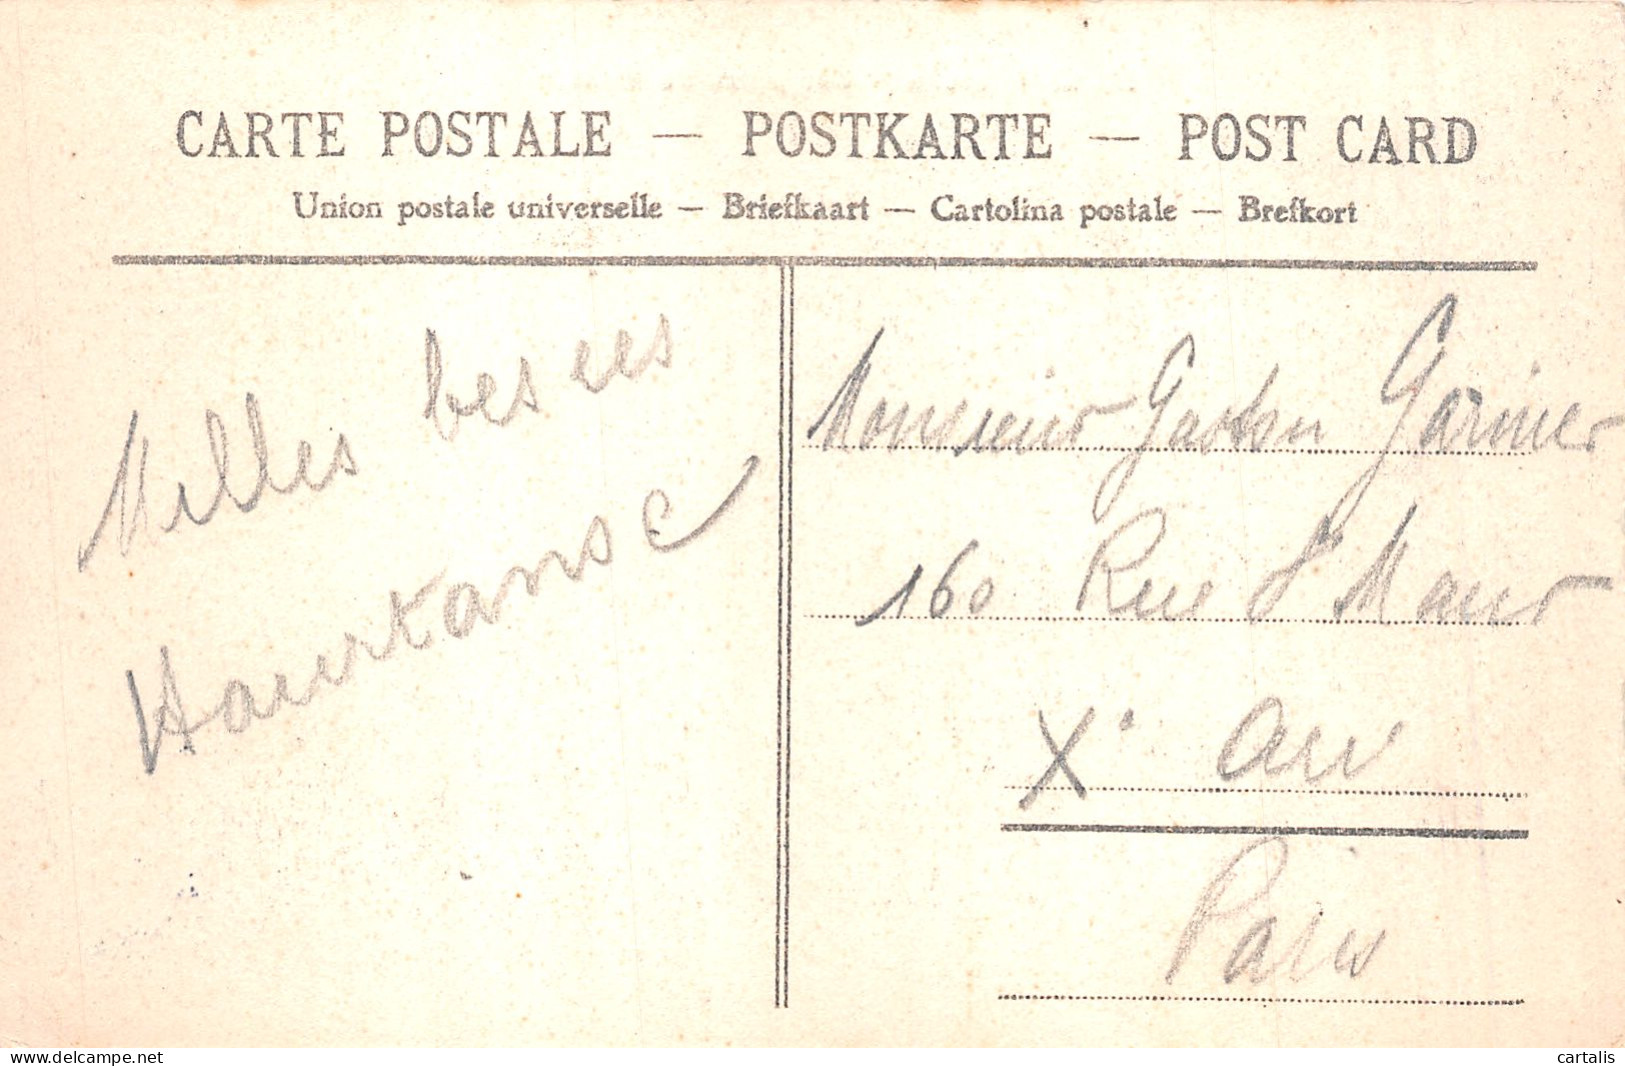 CARTE POSTALE — POSTKARTE — POST CARD
Union postale universelle — Briefkaart — Cartolina postale — Brefkort
Milles
Monsieur Gaston Garnier
160 Rue St Maur
Xe Arr
Paris
www.delcampe.net
cartalis